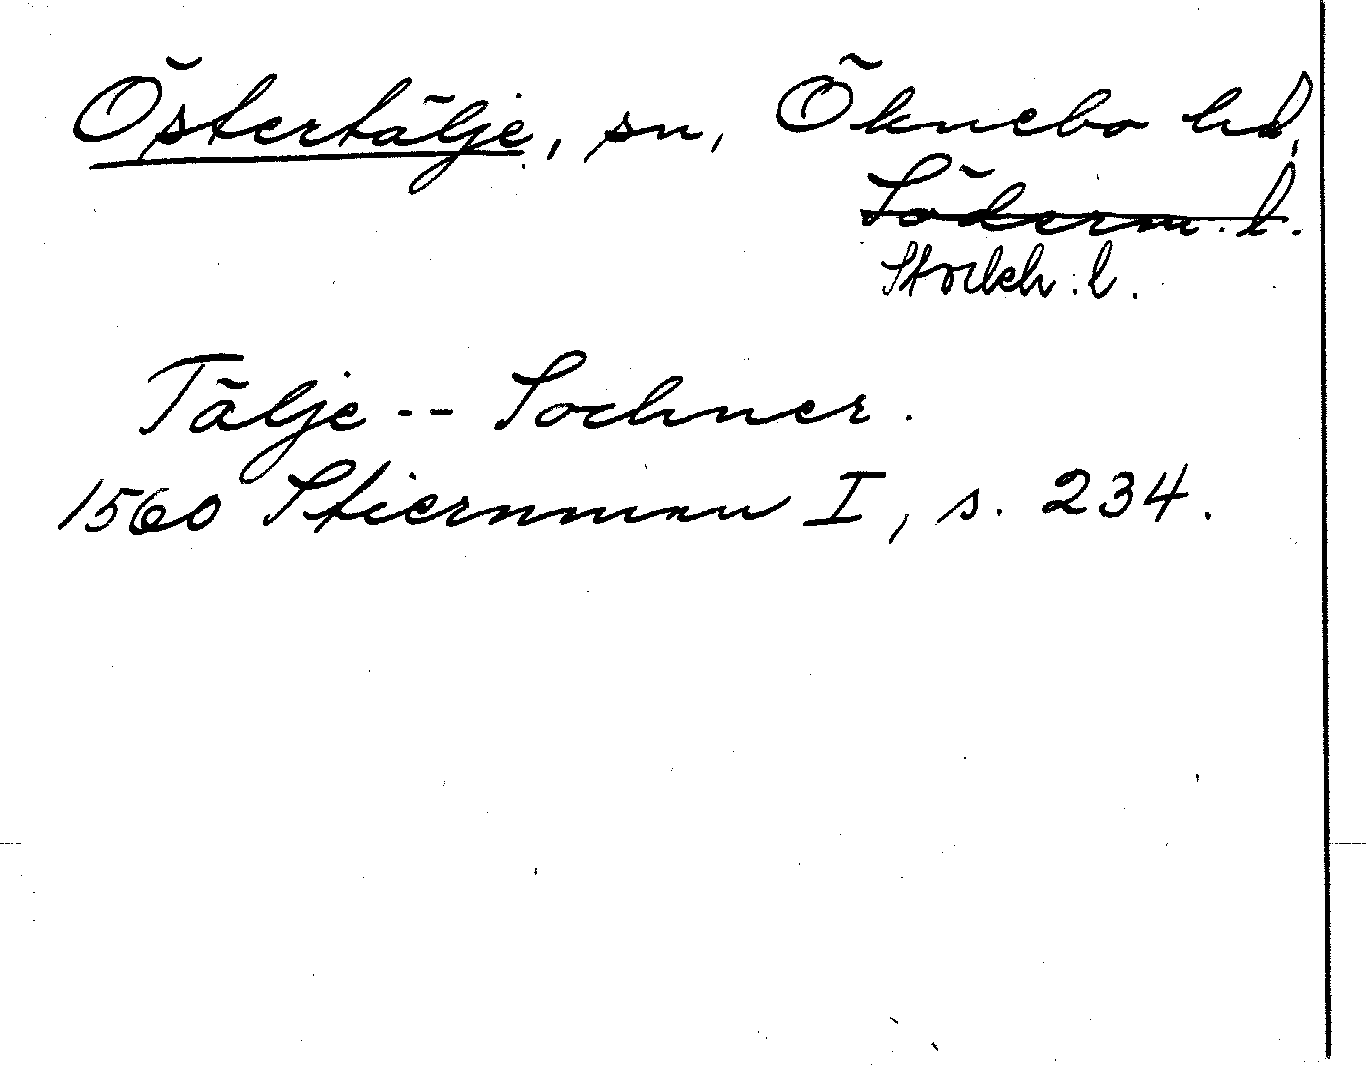 Östertälje, sn, Öknebo hd,
Söderm. l.
Stockh. l.
Tälje -- Sochner.
1560 Stiernman I, s. 234.